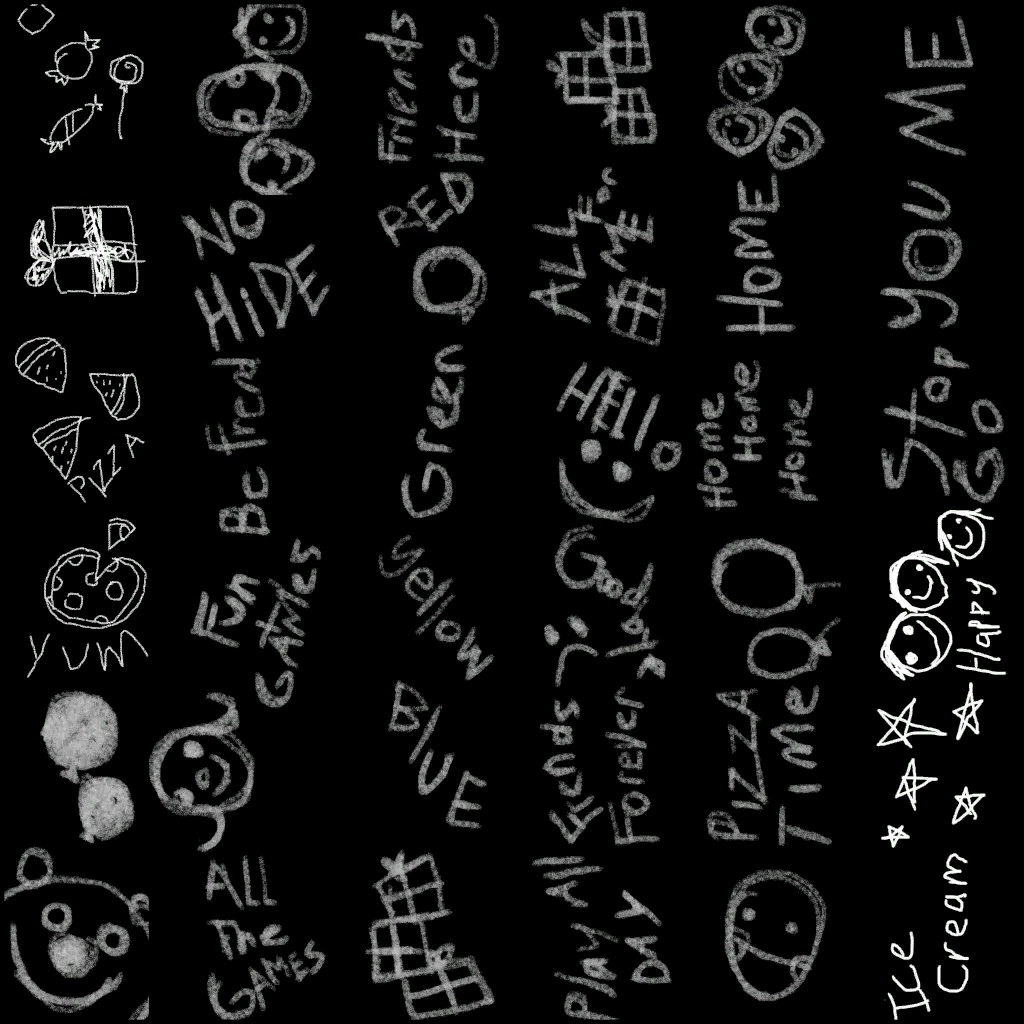 PIZZA
YUM
NO
HiDE
Be friend
Fun
GAMES
All
The
GAMES
Friends
Here
RED
Green
Yellow
BlUE
ALL
For
ME
HEllo
Good
Friends
Forever
Play All
DAY
HOME
Home
Home
Home
PIZZA
TiMe
YOU ME
Stop
GO
Happy
Ice
Cream